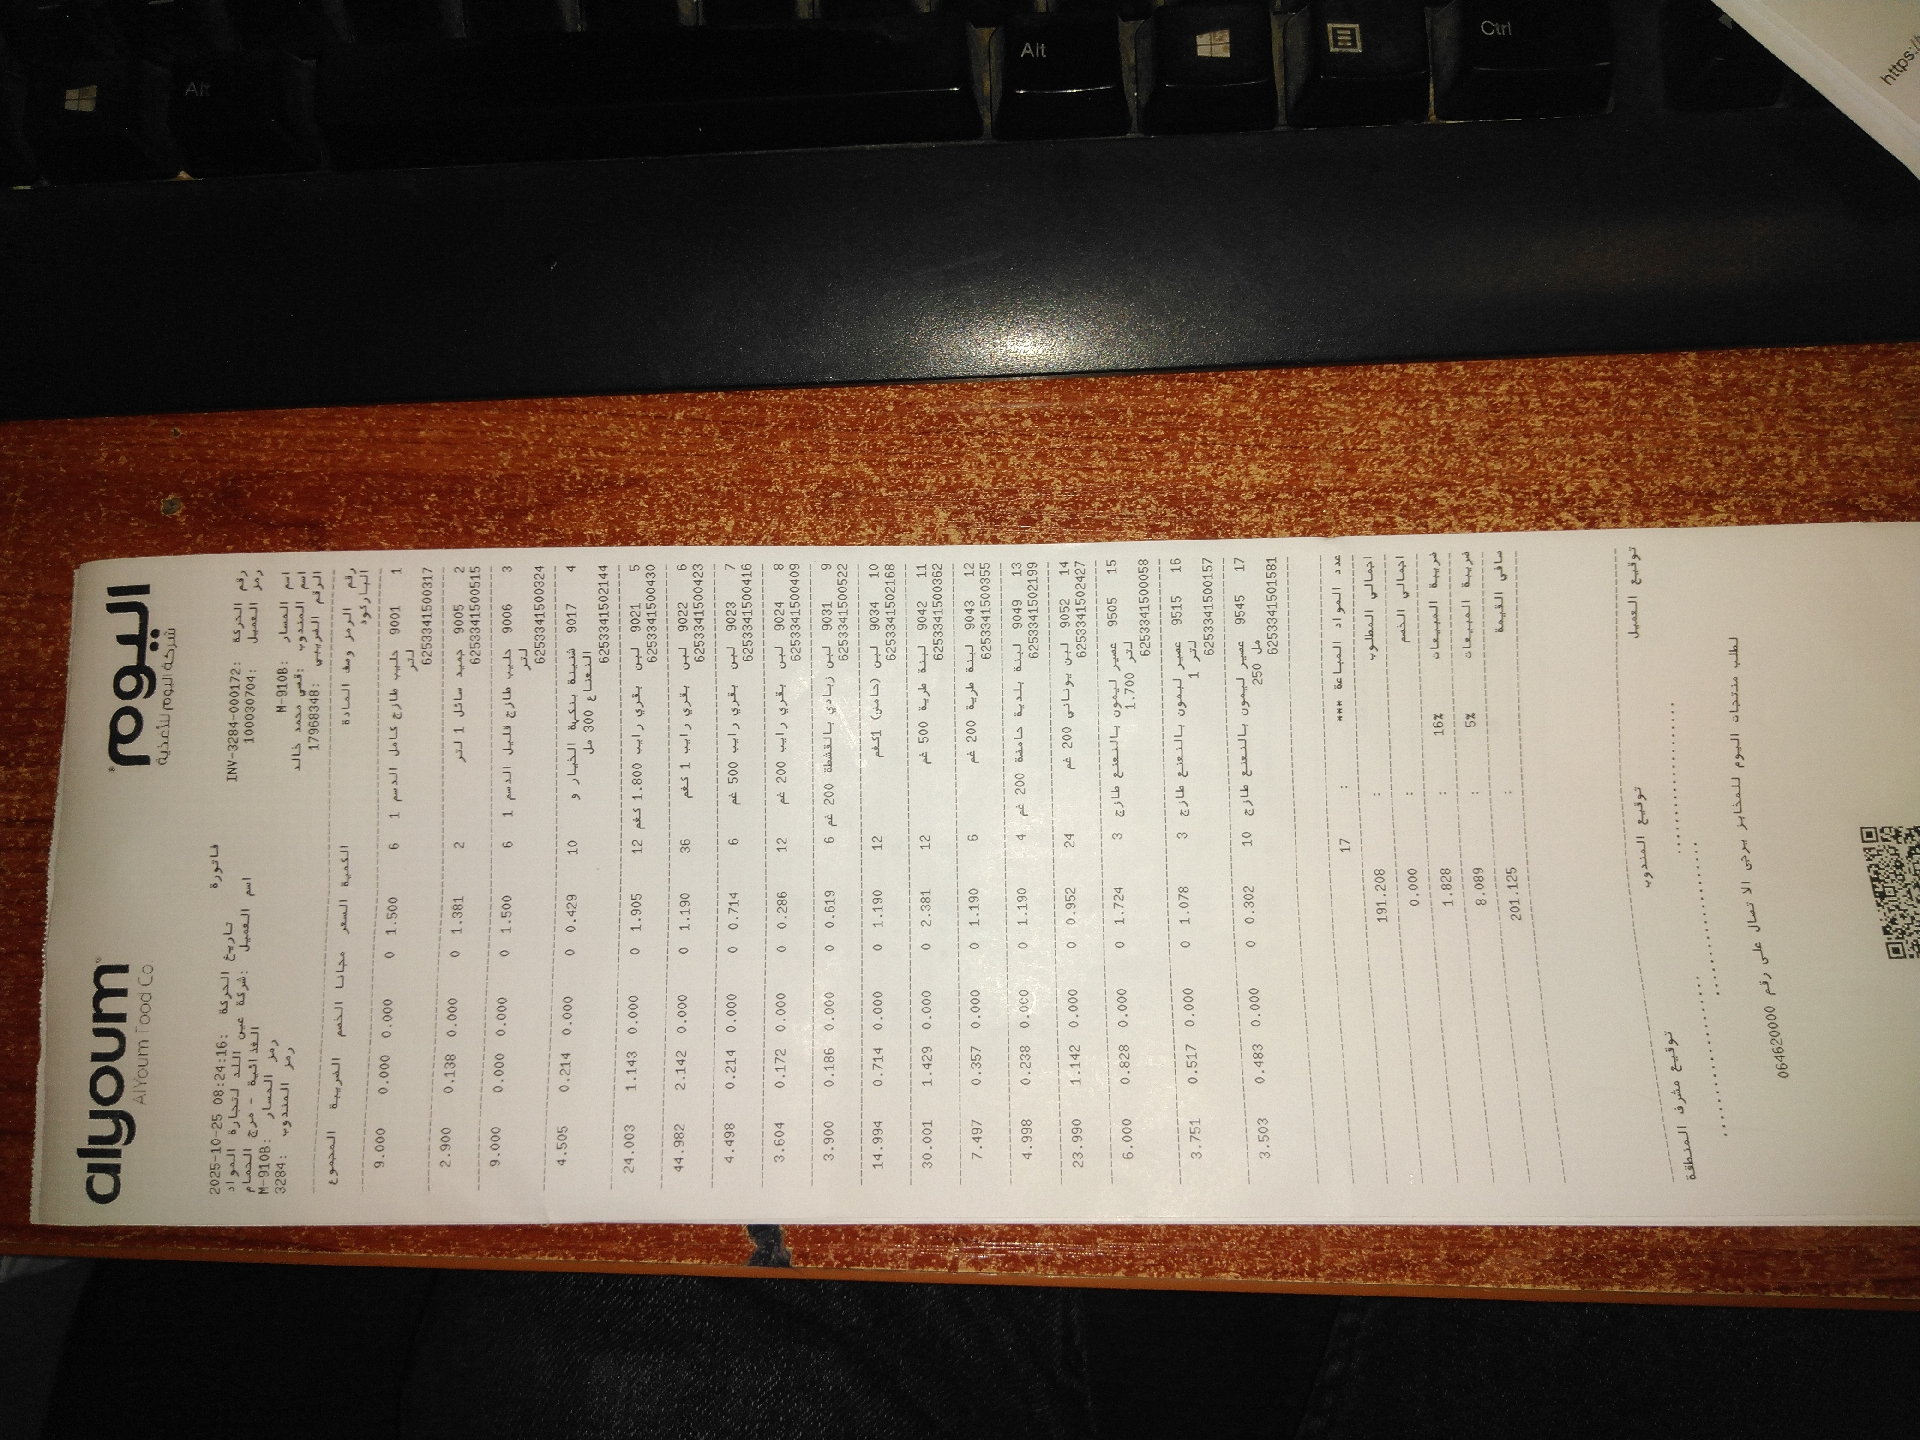 alyoum
اليوم
AlYoum Food Co.
شركة اليوم للأغذية
فاتورة
رقم الحركة :INV-3284-000172 تاريخ الحركة :2025-10-25 08:24:16
رمز العميل :100030704 اسم العميل :شركة عين اللد لتجارة المواد
الغذائية - مرج الحمام
اسم المسار :M-910B رمز المسار :M-910B
اسم المندوب :قصي محمد خالد رمز المندوب :3284
الرقم الضريبي :17968348
رقم الرمز وصف المادة الكمية السعر مجانا الخصم الضريبة المجموع
الباركود
1 9001 حليب طازج كامل الدسم 1 6 1.500 0 0.000 0.000 9.000
لتر
6253341500317
2 9005 جميد سائل 1 لتر 2 1.381 0 0.000 0.138 2.900
6253341500515
3 9006 حليب طازج قليل الدسم 1 6 1.500 0 0.000 0.000 9.000
لتر
6253341500324
4 9017 شنينة بنكهة الخيار و 10 0.429 0 0.000 0.214 4.505
النعناع 300 مل
6253341502144
5 9021 لبن بقري رايب 1.800 كغم 12 1.905 0 0.000 1.143 24.003
6253341500430
6 9022 لبن بقري رايب 1 كغم 36 1.190 0 0.000 2.142 44.982
6253341500423
7 9023 لبن بقري رايب 500 غم 6 0.714 0 0.000 0.214 4.498
6253341500416
8 9024 لبن بقري رايب 200 غم 12 0.286 0 0.000 0.172 3.604
6253341500409
9 9031 لبن زبادي بالقشطة 200 غم 6 0.619 0 0.000 0.186 3.900
6253341500522
10 9034 لبن (حامض) 1كغم 12 1.190 0 0.000 0.714 14.994
6253341502168
11 9042 لبنة طرية 500 غم 12 2.381 0 0.000 1.429 30.001
6253341500362
12 9043 لبنة طرية 200 غم 6 1.190 0 0.000 0.357 7.497
6253341500355
13 9049 لبنة بلدية حامضة 200 غم 4 1.190 0 0.000 0.238 4.998
6253341502199
14 9052 لبن يوناني 200 غم 24 0.952 0 0.000 1.142 23.990
6253341502427
15 9505 عصير ليمون بالنعنع طازج 3 1.724 0 0.000 0.828 6.000
1.700 لتر
6253341500058
16 9515 عصير ليمون بالنعنع طازج 3 1.078 0 0.000 0.517 3.751
1 لتر
6253341500157
17 9545 عصير ليمون بالنعنع طازج 10 0.302 0 0.000 0.483 3.503
250 مل
6253341501581
عدد المواد المباعة *** : 17
اجمالي المطلوب : 191.208
اجمالي الخصم : 0.000
ضريبة المبيعات 16% : 1.828
ضريبة المبيعات 5% : 8.089
صافي القيمة : 201.125
توقيع العميل
توقيع المندوب
توقيع مشرف المنطقة
لطلب منتجات اليوم للمخابز يرجى الاتصال على رقم 064620000
Alt
Alt
Ctrl
https://